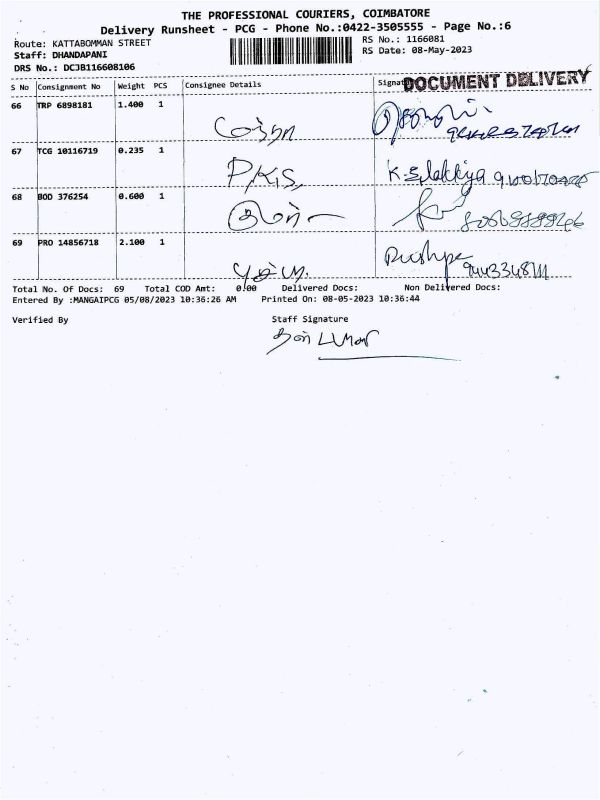 THE PROFESSIONAL COURIERS, COIMBATORE
Delivery Runsheet - PCG - Phone No.:0422-3505555 - Page No.:6
Route: KATTABOMMAN STREET RS No.: 1166081
Staff: DHANDAPANI RS Date: 08-May-2023
DRS No.: DCJB116608106
S No Consignment No Weight PCS Consignee Details Signat DOCUMENT DELIVERY
66 TRP 6898181 1.400 1
67 TCG 10116719 0.235 1
P.K.S,
68 BOD 376254 0.600 1
69 PRO 14856718 2.100 1
Total No. Of Docs: 69 Total COD Amt: 0.00 Delivered Docs: Non Delivered Docs:
Entered By :MANGAIPCG 05/08/2023 10:36:26 AM Printed On: 08-05-2023 10:36:44
Verified By Staff Signature